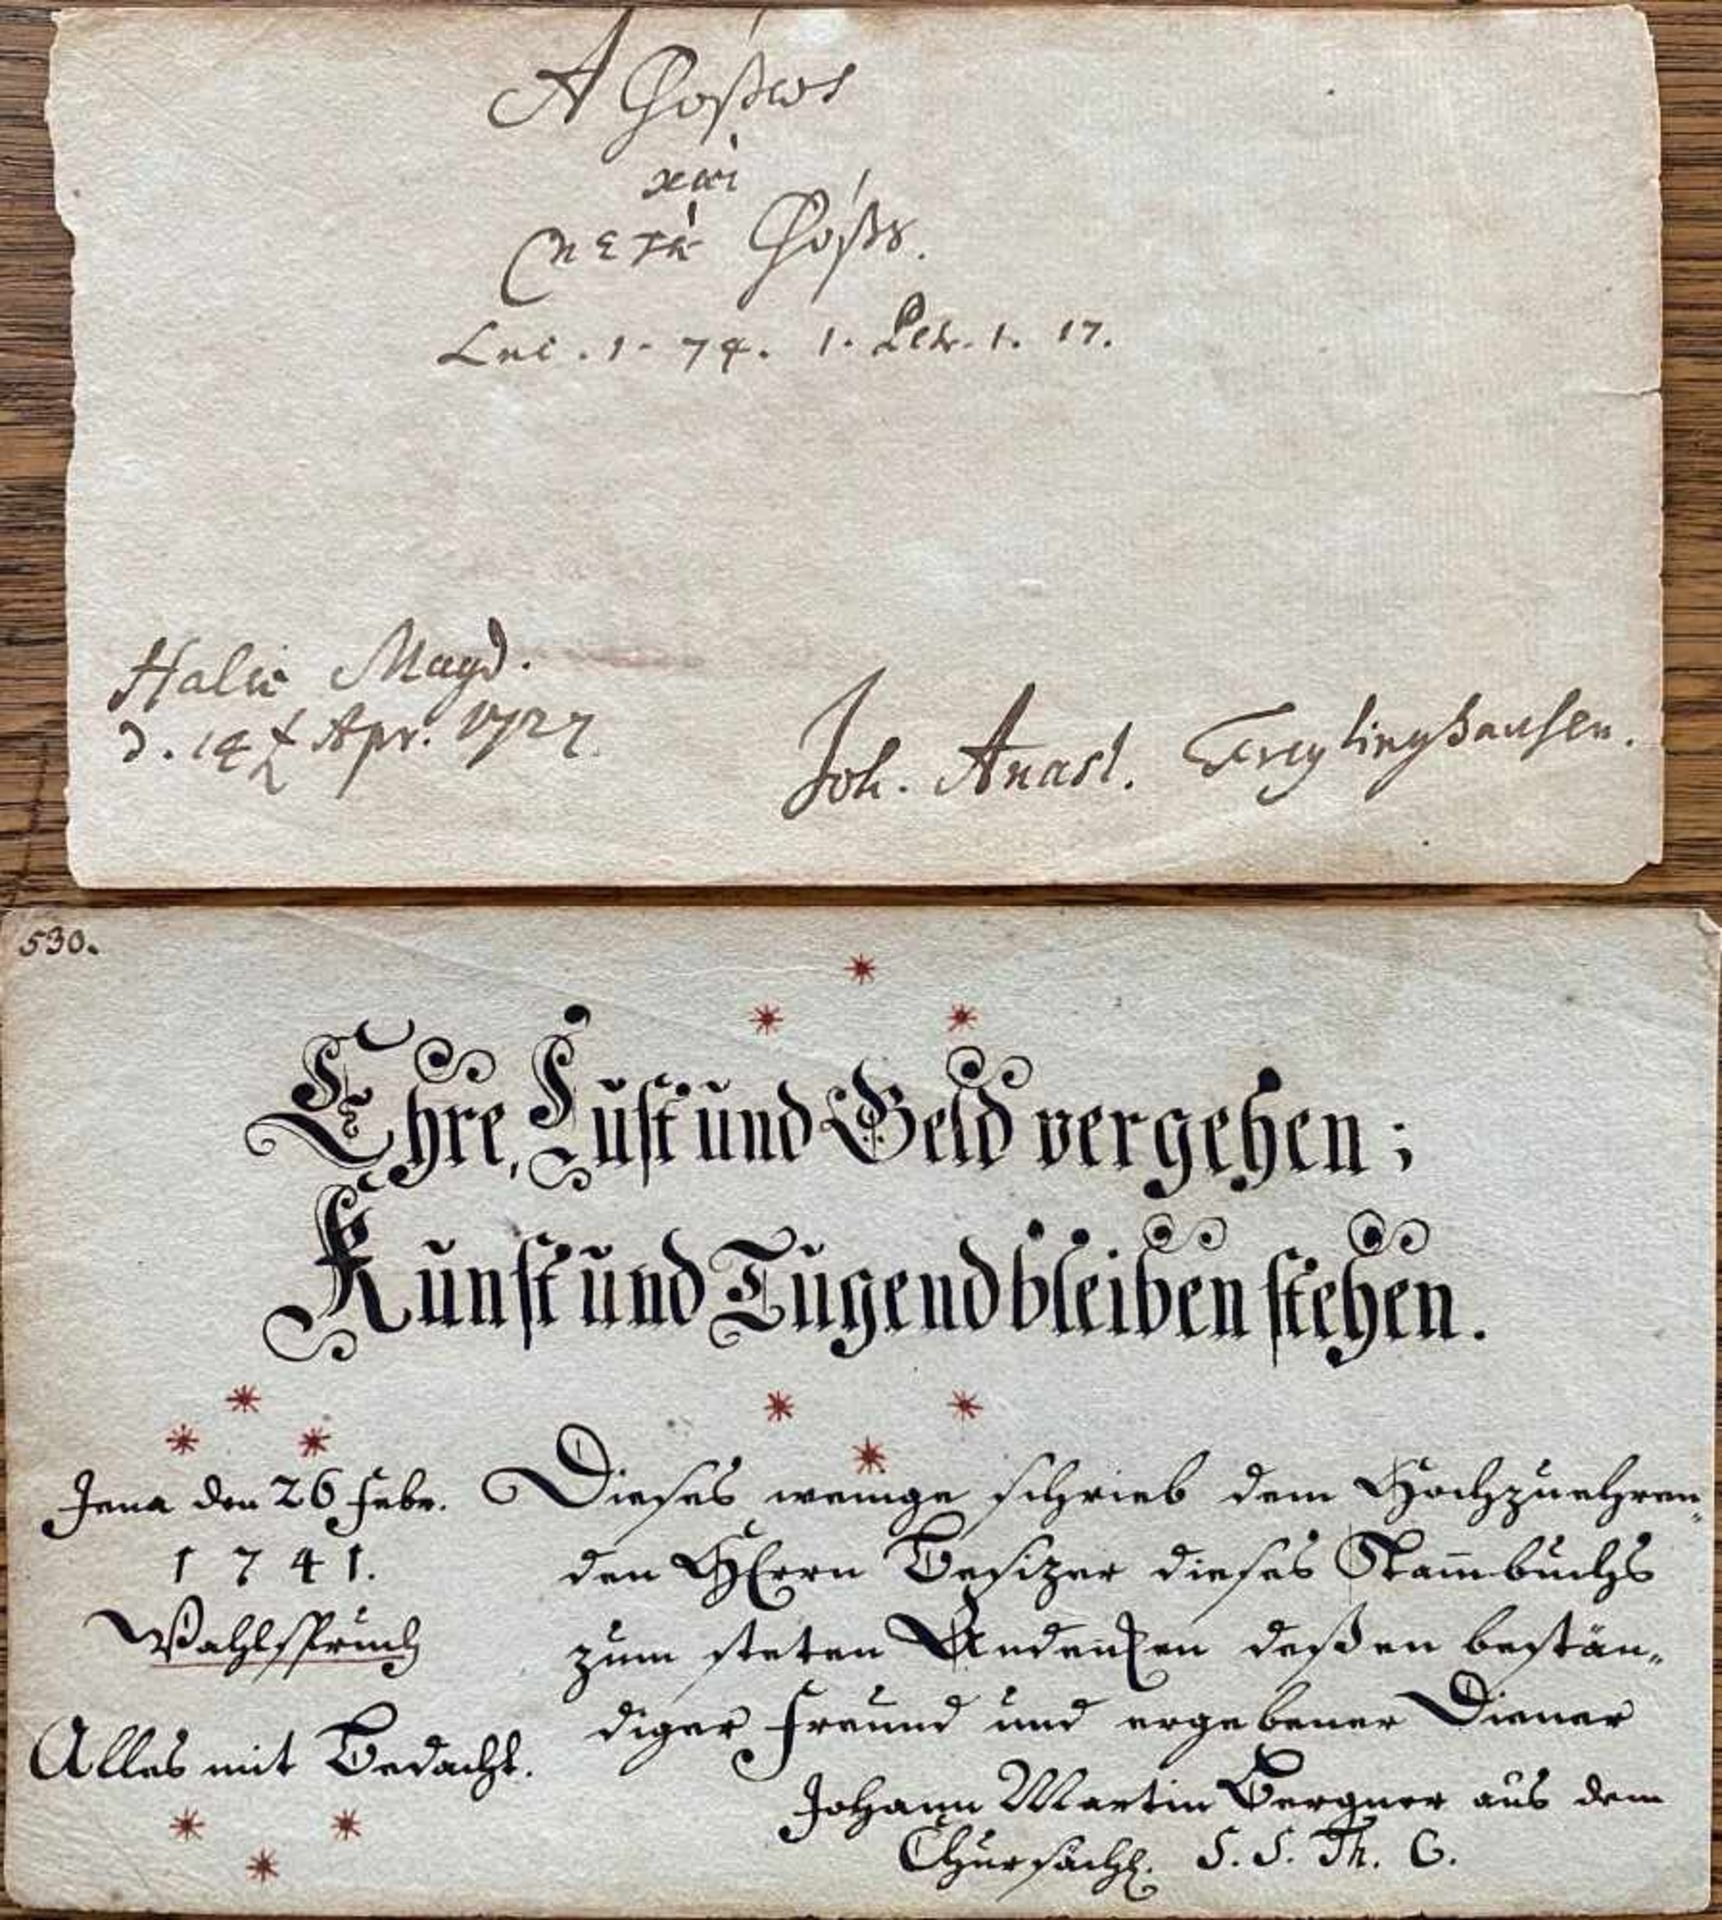 Ἀφόβως
καὶ
μετὰ φόβȣ.
Luc. 1. 74. 1. Petr. 1. 17.
Halæ Magd.
d. 14 Apr. 1727.
Joh. Anast. Freylinghausen.
530.
Ehre, Lust und Geld vergehen;
Kunst und Tugend bleiben stehen.
Jena den 26 Febr.
1741.
Wahlspruch
Alles mit Bedacht.
Dieses wenige schrieb dem Hochzuehren„
den HErrn Besizer dieses Stam̄buchs
zum steten Anden̄ken deßen bestän„
diger Freund und ergebener Diener
Johann Martin Bergner aus dem
Chursächß. S. S. Th. C.